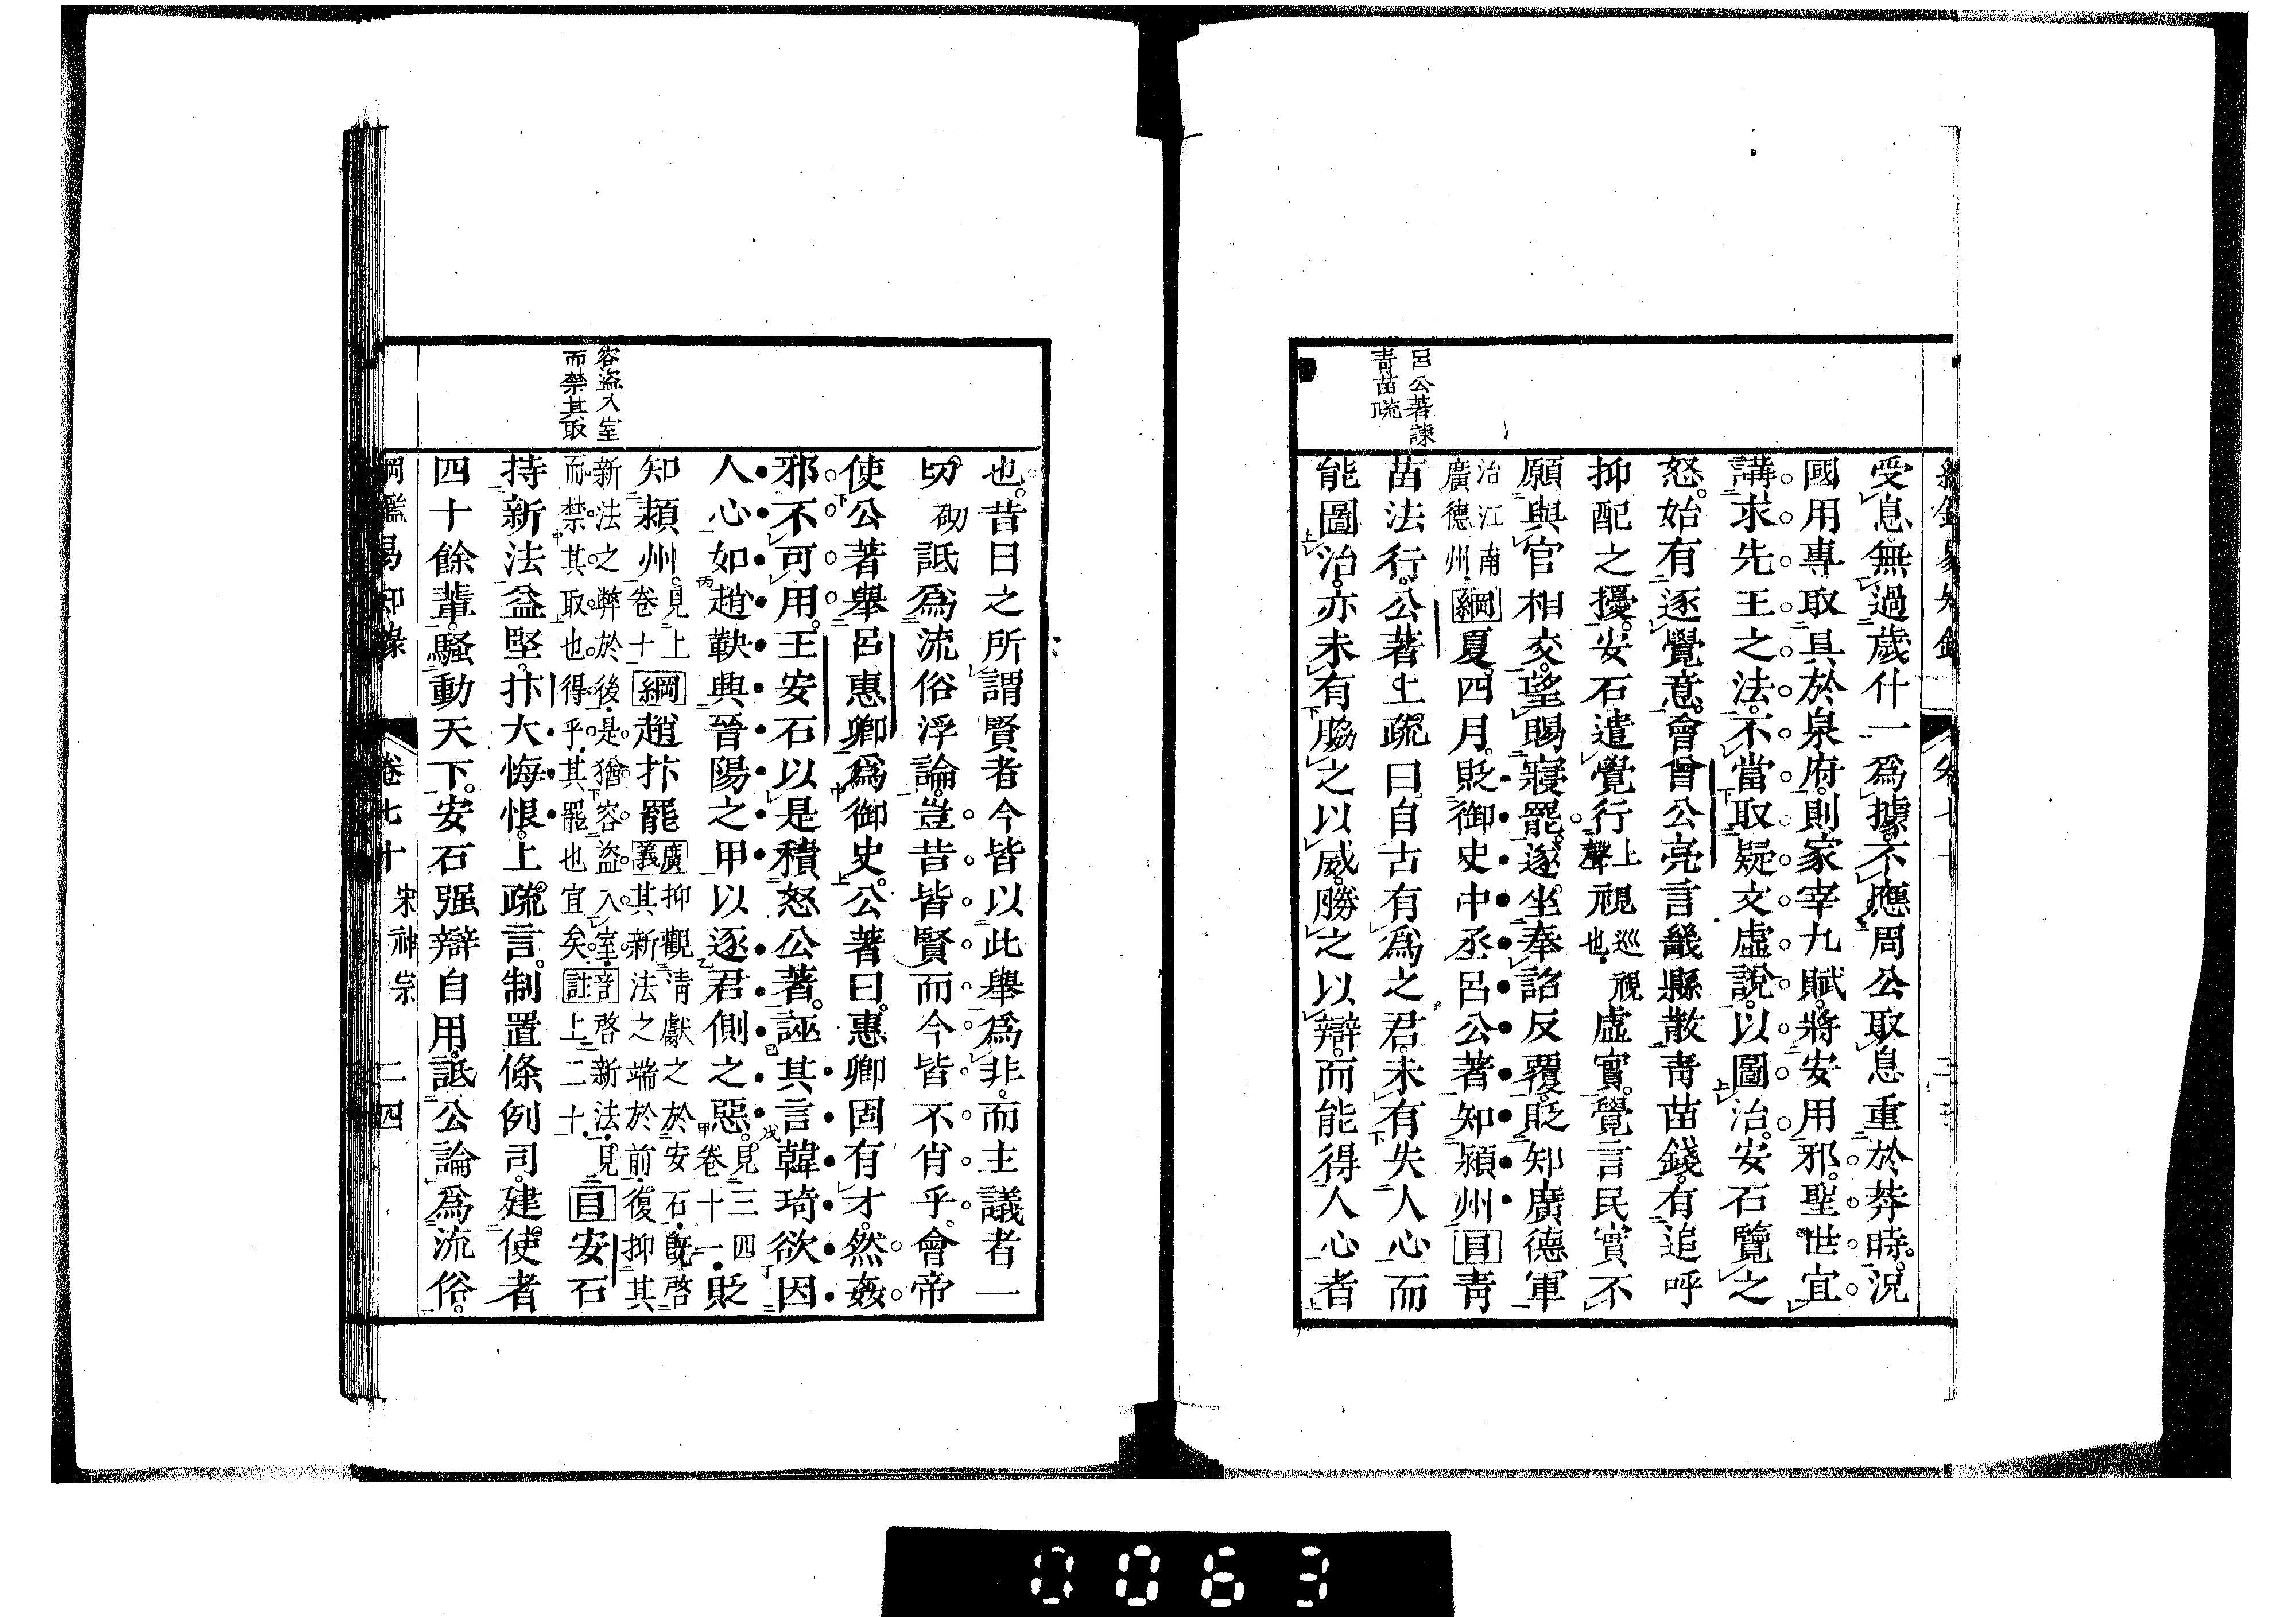 受息無過歲什一爲據不應周公取息重於莽時況
國用專取具於泉府則家宰九賦將安用邪聖世宜
講求先王之法不當取疑文虛說以圖治安石覽之
怒始有逐覺意會曾公亮言畿縣散青苗錢有追呼
抑配之擾安石遣覺行上聲視巡視也視虛實覺言民實不
願與官相交望賜寢罷遂坐奉詔反覆貶知廣德軍
治江南廣德州綱夏四月貶御史中丞呂公著知潁州目青
呂公著諫
青苗疏
苗法行公著上疏曰自古有爲之君未有失人心而
能圖治亦未有脇之以威勝之以辯而能得人心者
也昔日之所謂賢者今皆以此舉爲非而主議者一
切砌詆爲流俗浮論豈昔皆賢而今皆不肖乎會帝
使公著舉呂惠卿爲御史公著曰惠卿固有才然姦
邪不可用王安石以是積怒公著誣其言韓琦欲因
人心如趙鞅興晉陽之甲以逐君側之惡見三四卷十一貶
知潁州見上卷十綱趙抃罷廣義抑觀清獻之於安石既啓其新法之端於前復抑其
容盜入室
而禁其取
新法之弊於後是猶容盜入室而禁其取也得乎其罷也宜矣音註啓新法見上二十目安石
持新法益堅抃大悔恨上疏言制置條例司建使者
四十餘輩騷動天下安石强辯自用詆公論爲流俗
綱鑑易知錄 卷七十 宋神宗 二四
0063